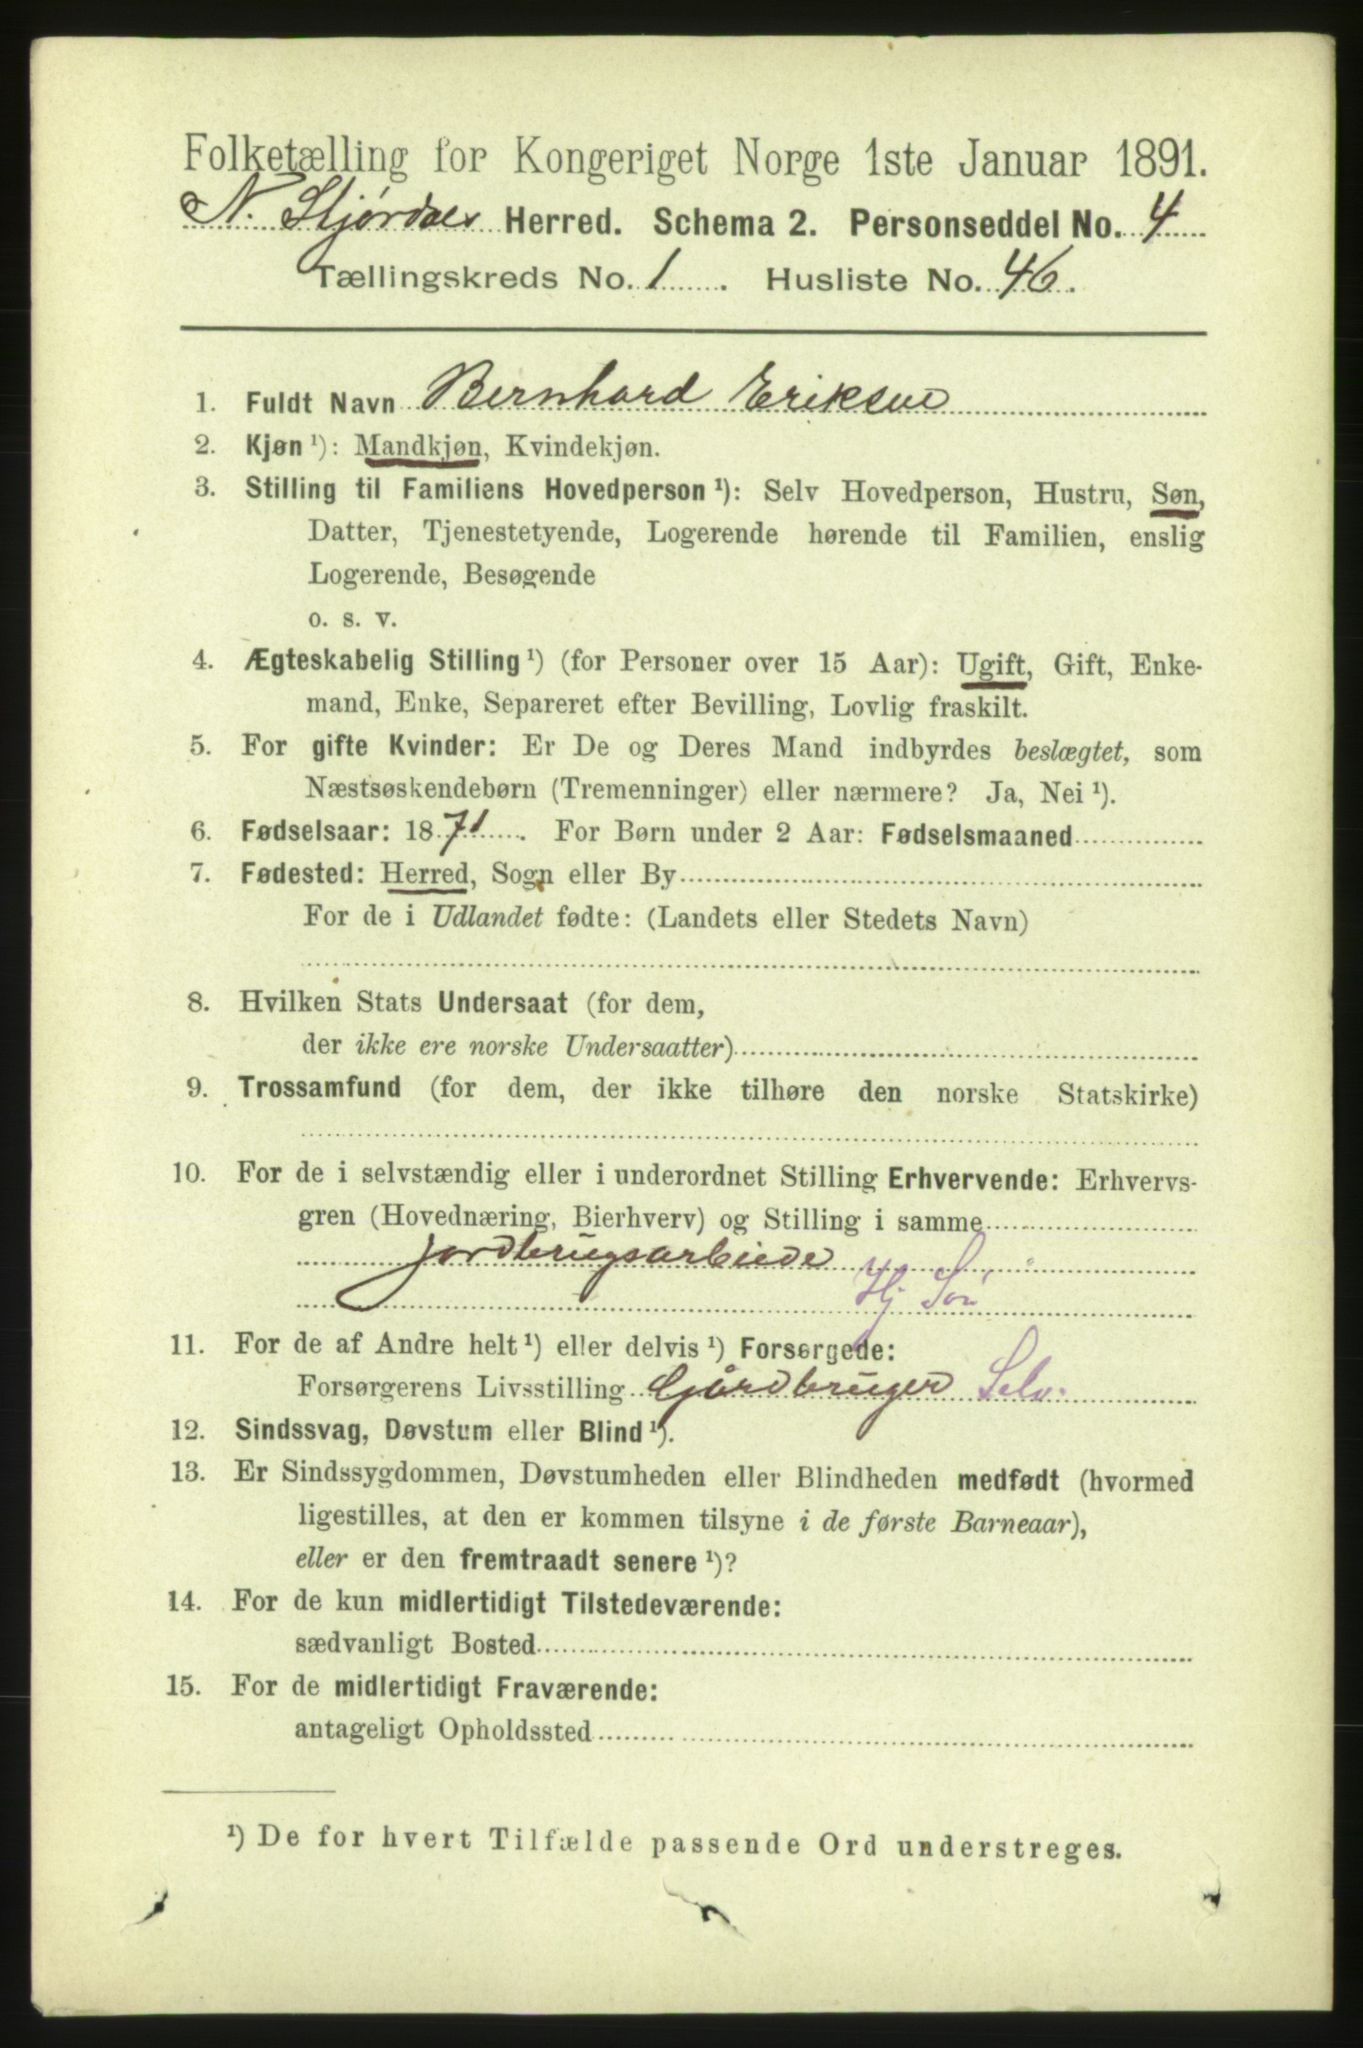 Folketælling for Kongeriget Norge 1ste Januar 1891.
N. Stjørdals Herred. Schema 2. Personseddel No. 4
Tællingskreds No. 1. Husliste No. 46.
1. Fuldt Navn Bernhard Eriksen
2. Kjøn ¹): Mandkjøn, Kvindekjøn.
3. Stilling til Familiens Hovedperson ¹): Selv Hovedperson, Hustru, Søn,
Datter, Tjenestetyende, Logerende hørende til Familien, enslig
Logerende, Besøgende
o. s. v.
4. Ægteskabelig Stilling ¹) (for Personer over 15 Aar): Ugift, Gift, Enke-
mand, Enke, Separeret efter Bevilling, Lovlig fraskilt.
5. For gifte Kvinder: Er De og Deres Mand indbyrdes beslægtet, som
Næstsøskendebørn (Tremenninger) eller nærmere? Ja, Nei ¹).
6. Fødselsaar: 1871. For Børn under 2 Aar: Fødselsmaaned
7. Fødested: Herred, Sogn eller By
For de i Udlandet fødte: (Landets eller Stedets Navn)
8. Hvilken Stats Undersaat (for dem,
der ikke ere norske Undersaatter)
9. Trossamfund (for dem, der ikke tilhøre den norske Statskirke)
10. For de i selvstændig eller i underordnet Stilling Erhvervende: Erhvervs-
gren (Hovednæring, Bierhverv) og Stilling i samme
jordbrugsarbeide
Hj Søn
11. For de af Andre helt ¹) eller delvis ¹) Forsørgede:
Forsørgerens Livsstilling Gårdbruger Selv.
12. Sindssvag, Døvstum eller Blind ¹).
13. Er Sindssygdommen, Døvstumheden eller Blindheden medfødt (hvormed
ligestilles, at den er kommen tilsyne i de første Barneaar),
eller er den fremtraadt senere ¹)?
14. For de kun midlertidigt Tilstedeværende:
sædvanligt Bosted
15. For de midlertidigt Fraværende:
antageligt Opholdssted
¹) De for hvert Tilfælde passende Ord understreges.